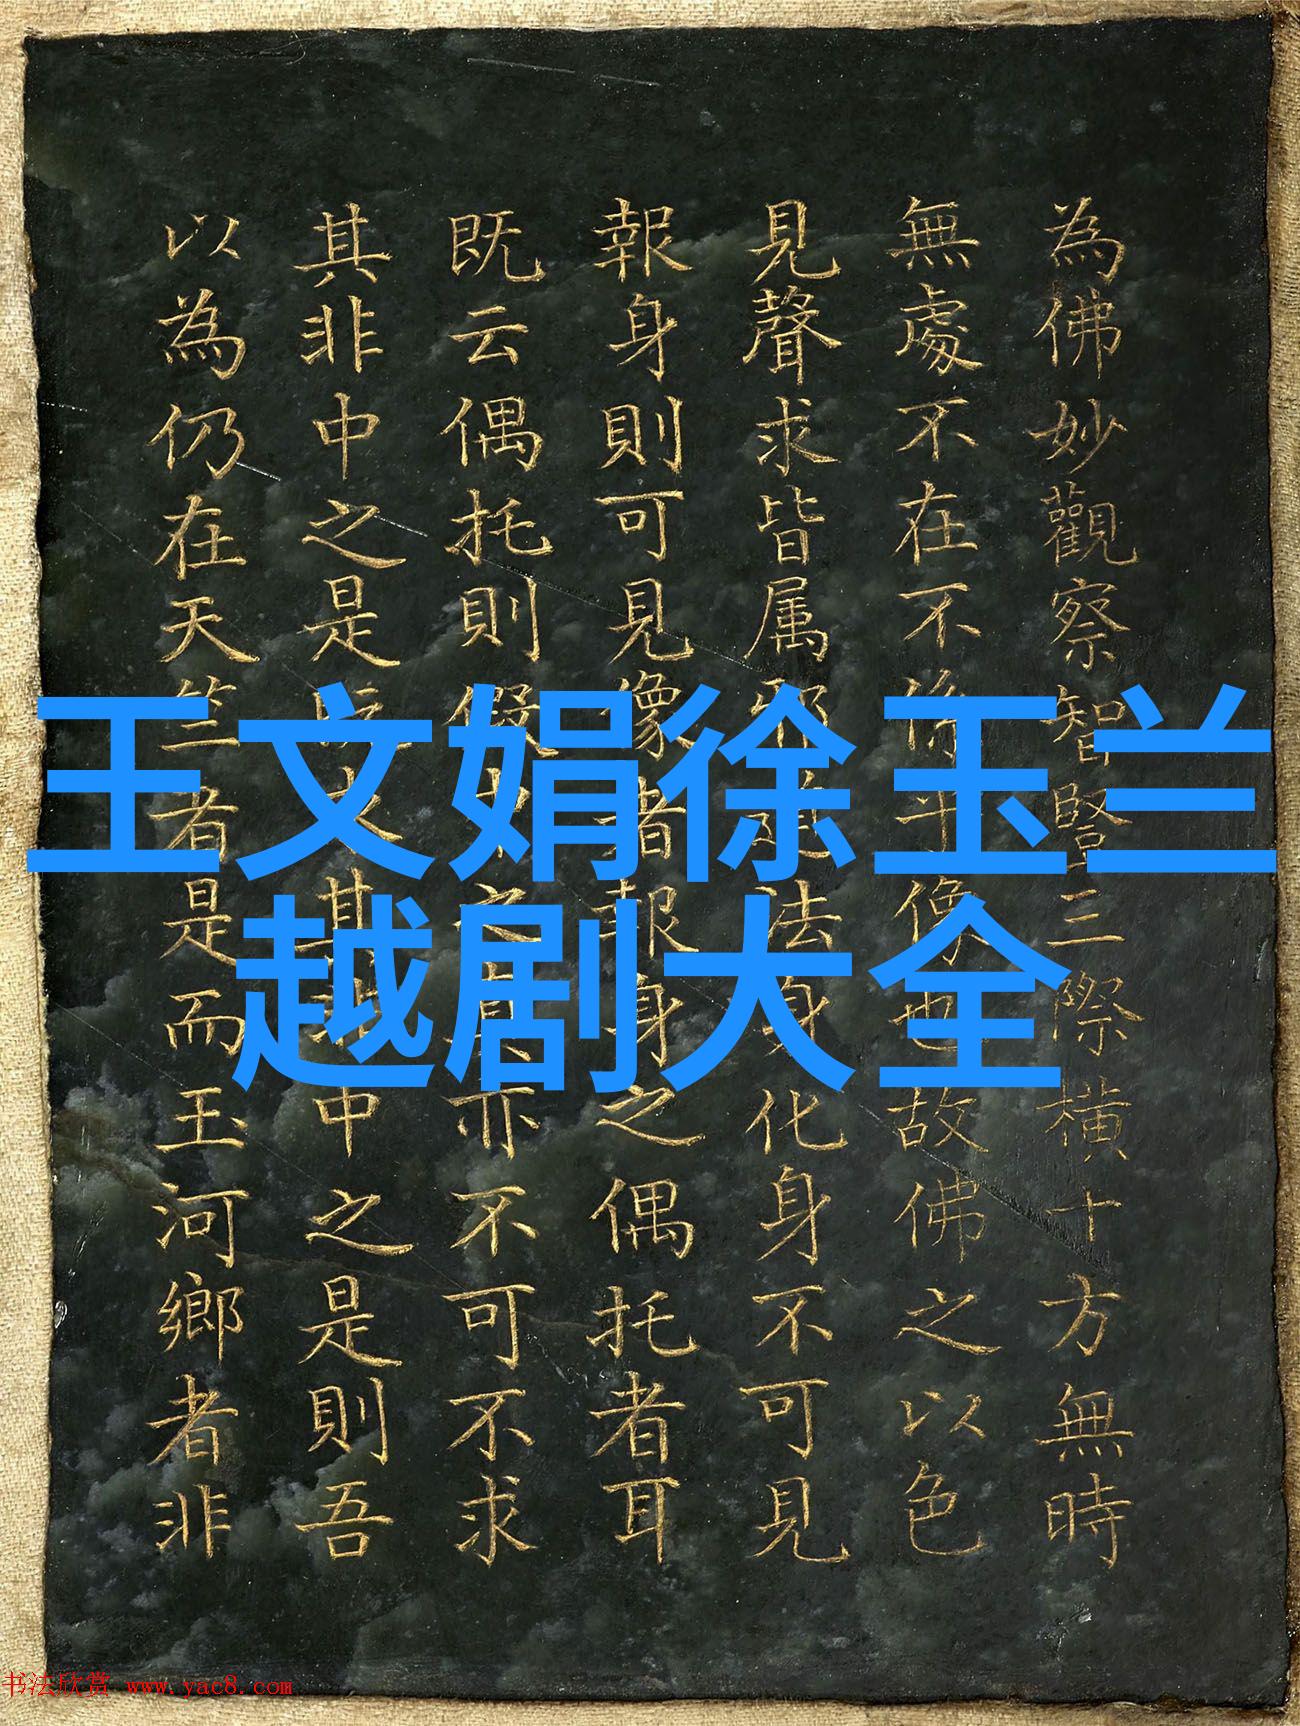 為佛妙觀察智豎三際橫十方無時
無處不在不係乎像也故佛之以色
見聲求皆属邪道法身化身不可見
報身則可見像者報身之偶托者耳
既云偶托則假中之真亦不可不求
其非中之是既求其非中之是則吾
以為仍在天竺者是而玉河鄉者非
王文娟徐玉兰
越剧大全
书法欣赏 www.yac8.com